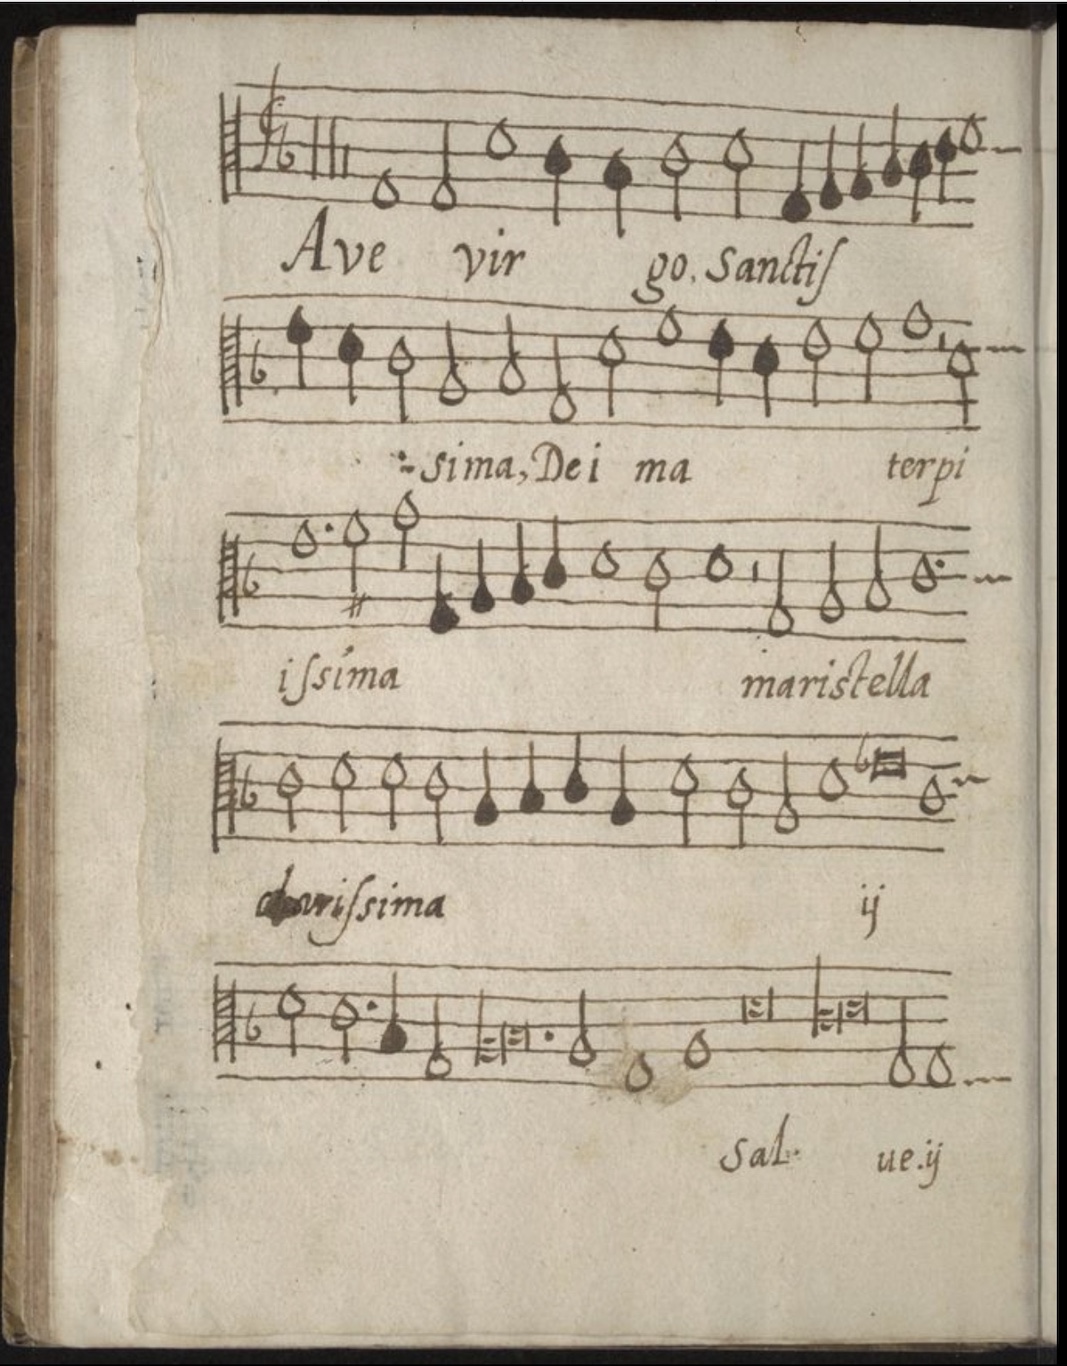 Ave vir go. Sanctiſ
-sima, Dei ma terpi
iſsima maristella
clariſsima ij
Sal. ue. ij